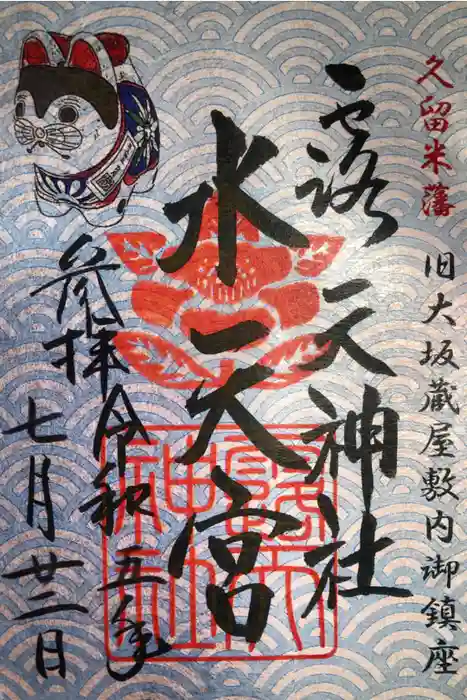 久留米藩
旧大坂蔵屋敷内御鎮座
露天神社
水天宮
参拝令和五年
七月廿三日
露天
神社